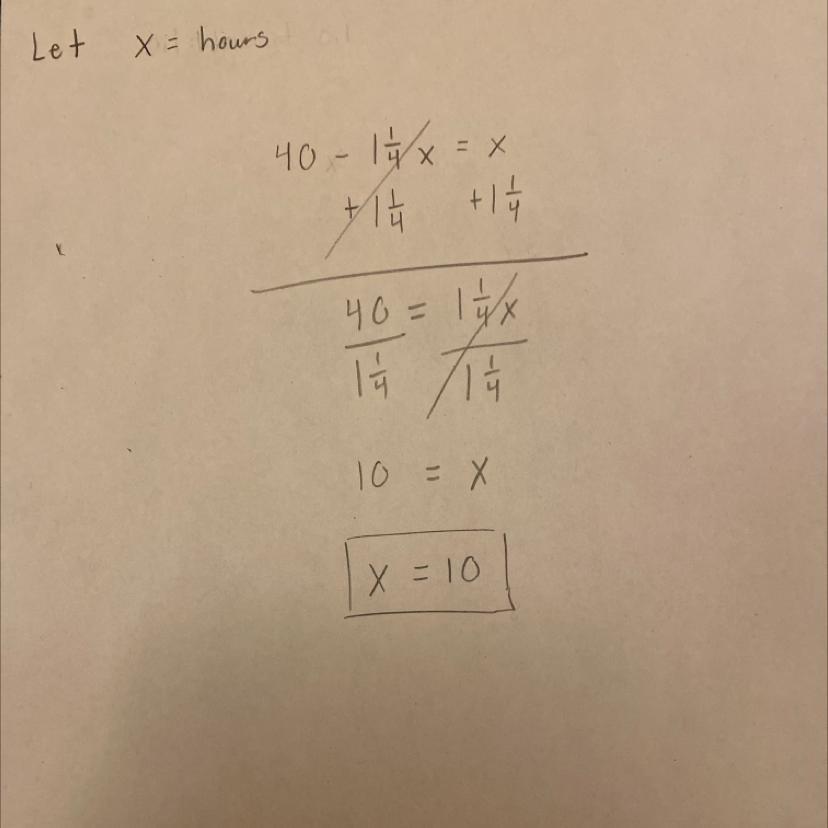 Let x = hours
40 - 1 1/4 x = x
+ 1 1/4 + 1 1/4
40 = 1 1/4 x
1 1/4 1 1/4
10 = x
x = 10